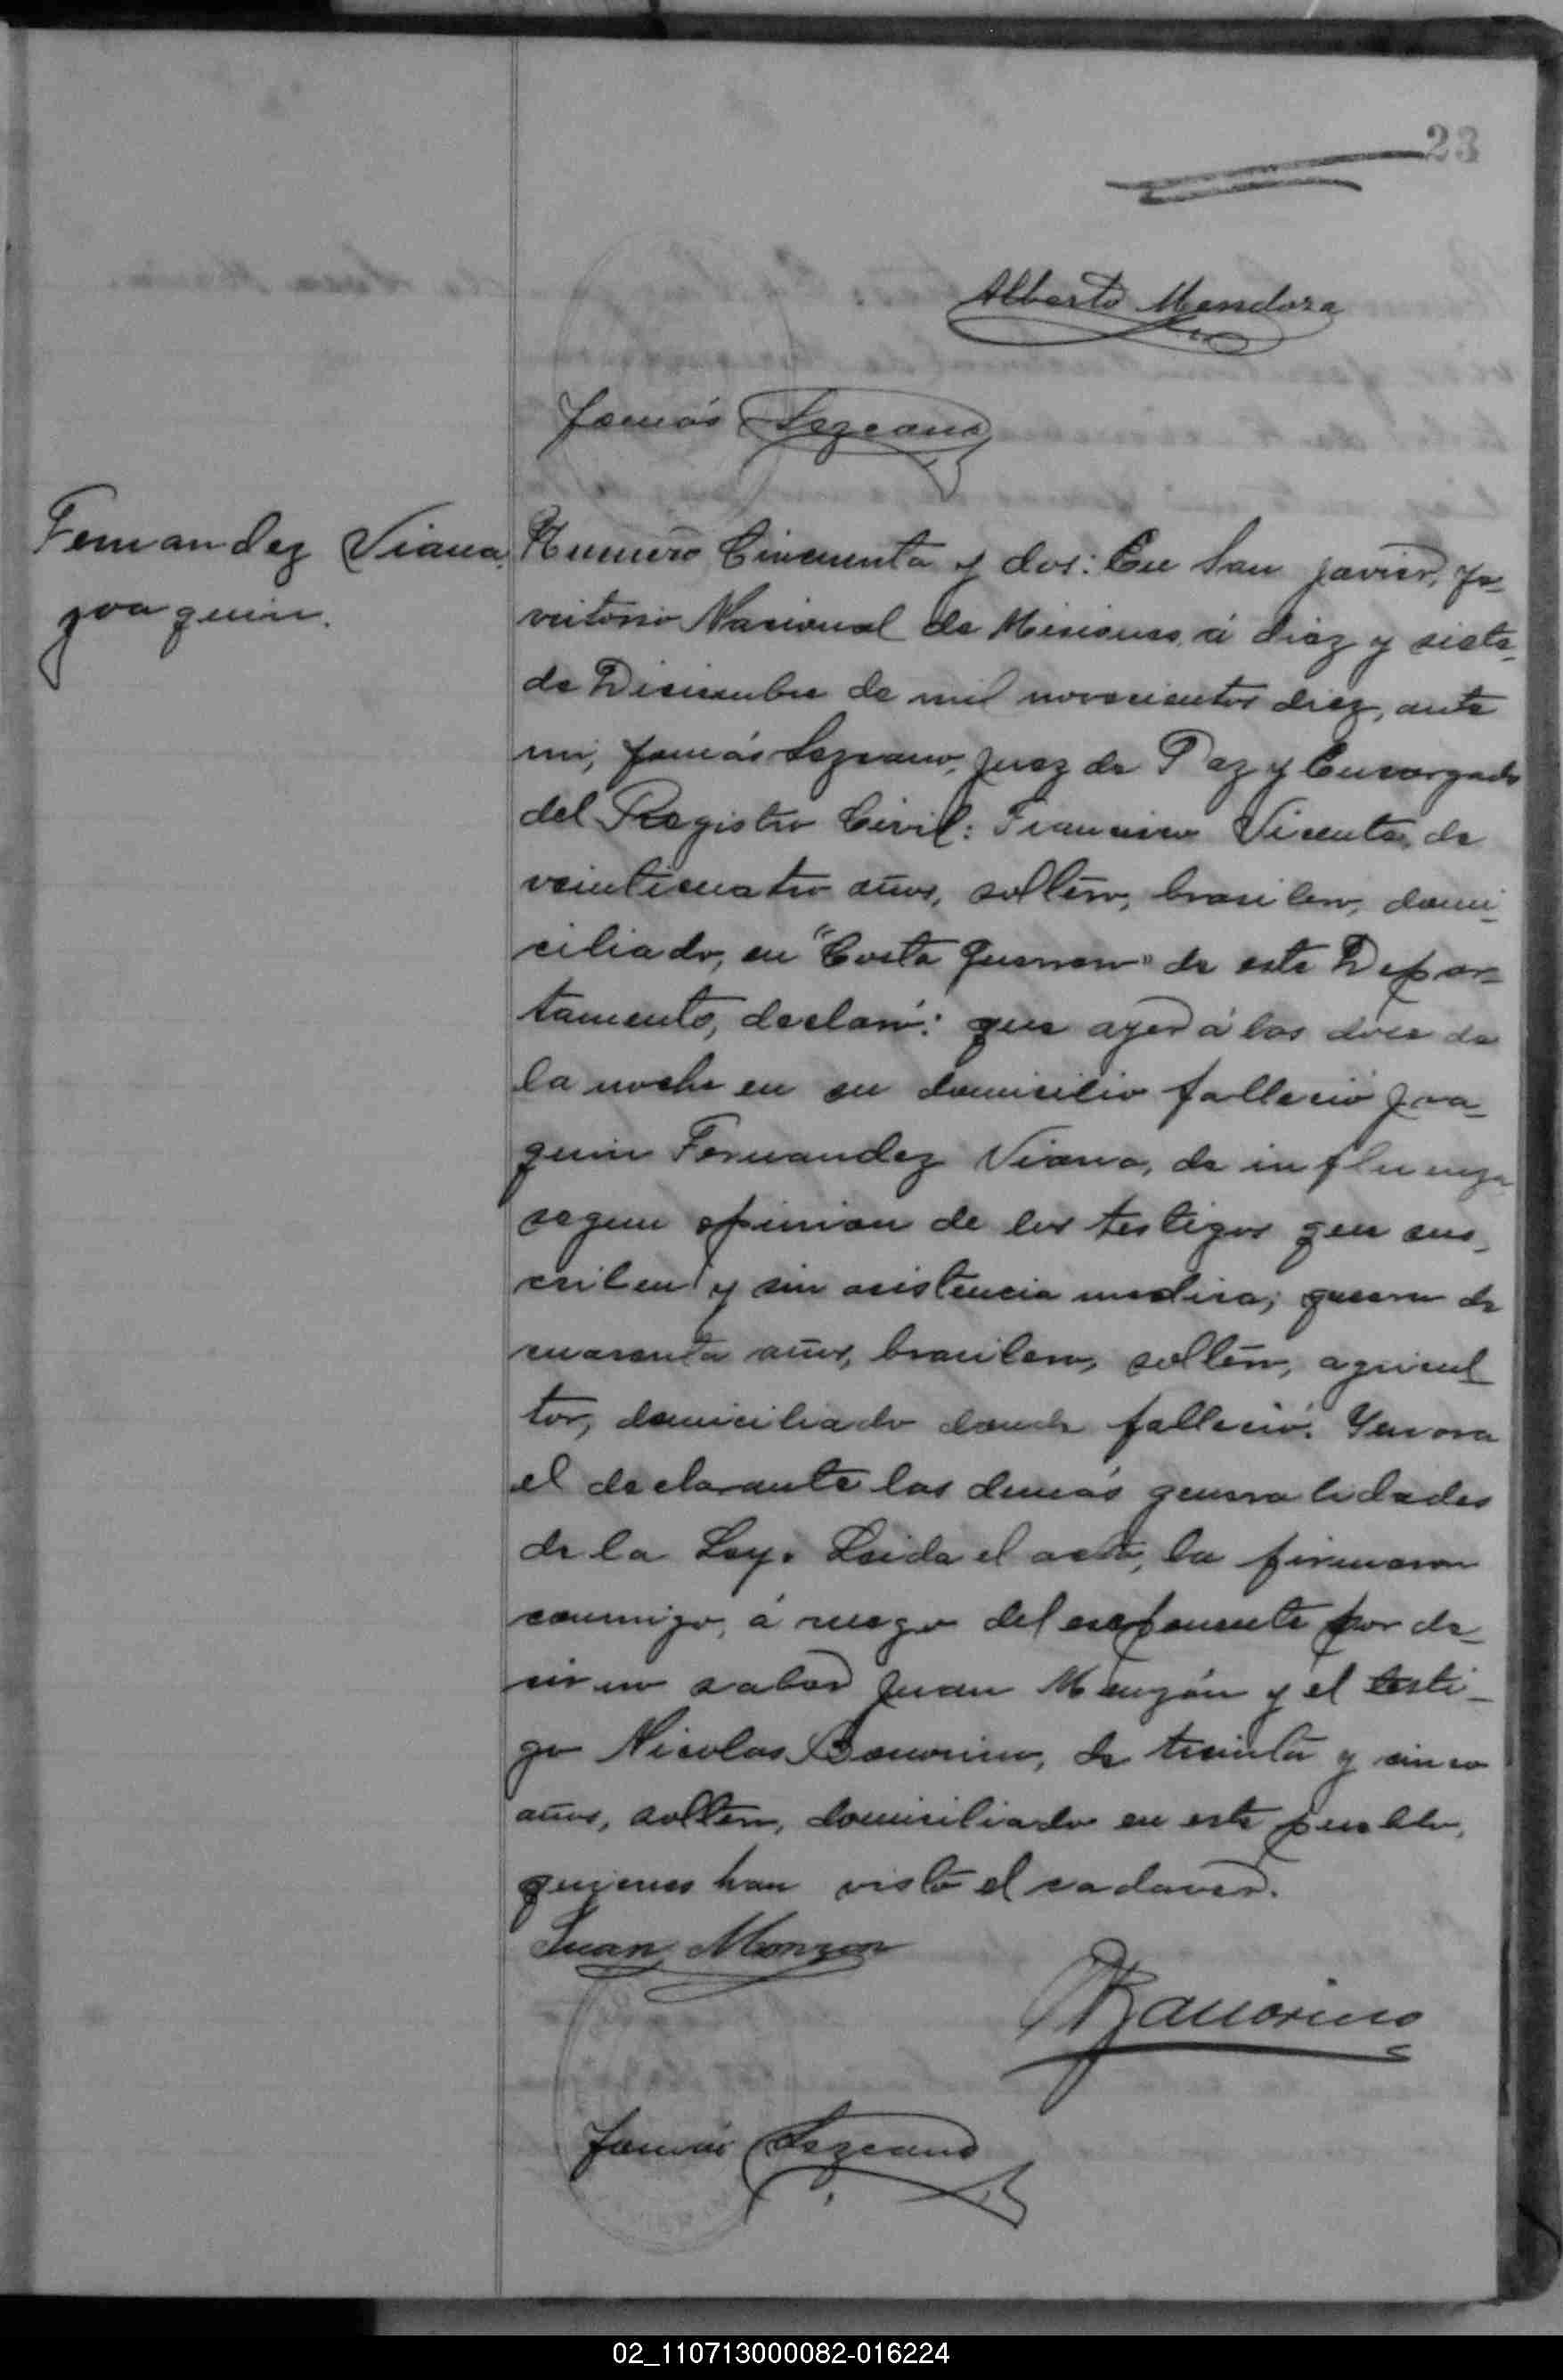 23
Alberto Mendoza
Tomás Lezcano
Fernandez Viana
Joaquin.
Numero Cincuenta y dos: En San Javier, Te-
rritorio Nacional de Misiones, á diez y siete
de Diciembre de mil novecientos diez, ante
mi, Tomás Lezcano, Juez de Paz y Encargado
del Registro Civil: Francisco Vicente, de
veinticuatro años, soltero, brasilero, domi-
ciliado, en "Costa " de este Depar-
tamento, declaró: que ayer á las doce de
la noche en su domicilio falleció Joa-
quin Fernandez Viana, de influenza
segun opinion de los testigos que sus-
criben y sin asistencia medica; que era de
cuarenta años, brasilero, soltero, agricul-
tor, domiciliado donde falleció. Ygnora
el declarante las demás generalidades
de la Ley. Leida el acta, la firmaron
conmigo, á ruego del exponente por de-
cir no saber Juan Monzón y el testi-
go Nicolas Banorino, de treinta y cinco
años, soltero, domiciliado en este pueblo,
quienes han visto el cadaver.
Juan Monzon
NBanorino
Tomás Lezcano
02_110713000082-016224